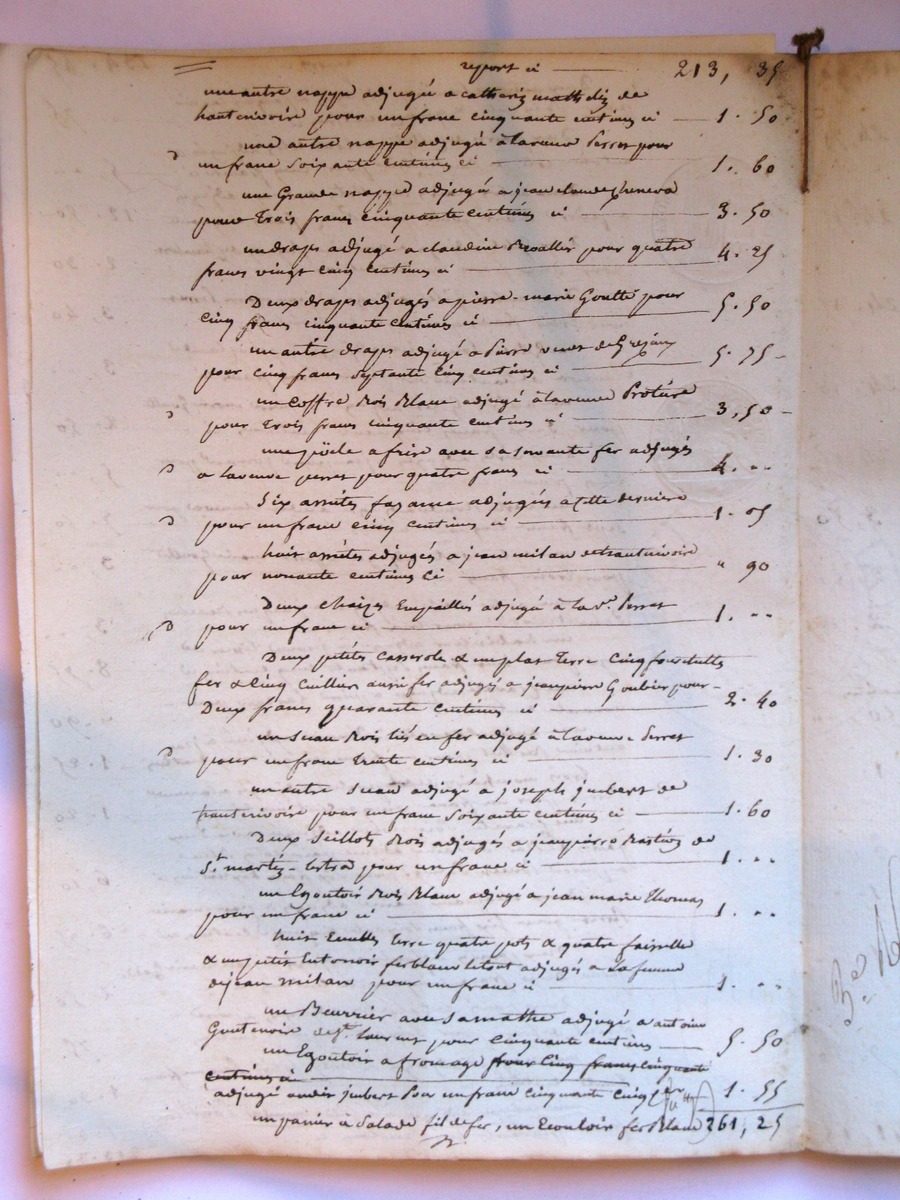 report ci 213, 35
une autre nappe adjugée a catherine mathelin de
hauterivoire pour un franc cinquante centimes ci 1. 50
une autre nappe adjugée à la veuve Perret pour
un franc soixante centimes ci 1. 60
une Grande nappe adjugée a jean claude
pour trois francs cinquante centimes ci 3. 50
un draps adjugé a claudine pour quatre
francs vingt cinq centimes ci 4. 25
Deux draps adjugés a pierre-marie Goutte pour
cinq francs cinquante centimes ci 5. 50
un autre draps adjugé a Pierre de
pour cinq francs septante cinq centimes ci 5. 75
un coffre Bois Blanc adjugé à la veuve
pour trois francs cinquante centimes ci 3, 50
une poële a frire avec sa servante fer adjugés
a la veuve perret pour quatre francs ci 4. "
Six assietes fayance adjugées a cette derniere
pour un franc cinq centimes ci 1. 05
huit assietes adjugées a jean milan de hauterivoire
pour nonante centimes ci " 90
Deux chaizes Empaillés adjugé à la ve Perret
pour un franc ci 1. "
Deux petites casserole & un plat terre cinq fourchettes
fer & cinq cuilliers aussi fer adjugés a jean pierre Goubier pour
Deux francs quarante centimes ci 2. 40
un Seau Bois liés en fer adjugé à la veuve Perret
pour un franc trente centimes ci 1. 30
un autre Seau adjugé a joseph jmbert de
hauterivoire pour un franc soixante centimes ci 1. 60
Deux Seillots Bois adjugés a jean pierre de
St martin-lestra pour un franc ci 1. "
un Egoutoir Bois Blanc adjugé a jean marie Thomas
pour un franc ci 1. "
huit terre quatre pots & quatre faisselle
& un petit Entonoir ferblanc le tout adjugés a la femme
de jean milan pour un franc ci 1. "
un Beurrier avec sa adjugé a antoine
de St laurent pour cinquante centimes 5. 50
un Egoutoir a fromage pour cinq francs cinquante
centimes ci
adjugé jmbert Pour un franc cinquante cinq 1. 55
un panier à Salade fil de fer, un Ecouloir fer Blanc 261, 25